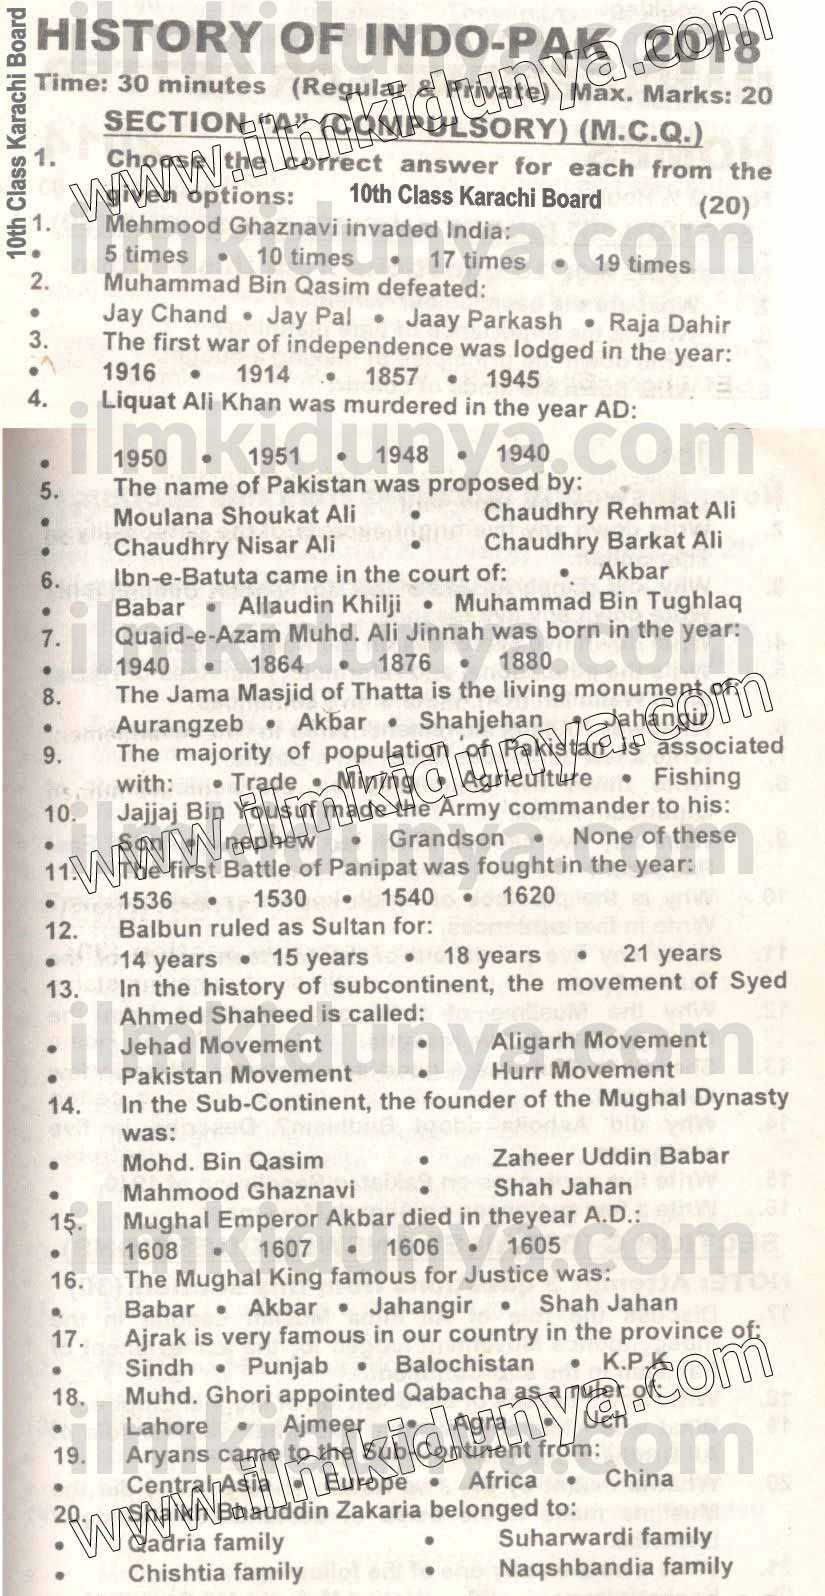 10th Class Karachi Board
HISTORY OF INDO-PAK 2018
Time: 30 minutes (Regular & Private) Max. Marks: 20
SECTION "A" (COMPULSORY) (M.C.Q.)
1. Choose the correct answer for each from the
given options: 10th Class Karachi Board (20)
1. Mehmood Ghaznavi invaded India:
• 5 times • 10 times • 17 times • 19 times
2. Muhammad Bin Qasim defeated:
• Jay Chand • Jay Pal • Jaay Parkash • Raja Dahir
3. The first war of independence was lodged in the year:
• 1916 • 1914 • 1857 • 1945
4. Liquat Ali Khan was murdered in the year AD:
• 1950 • 1951 • 1948 • 1940
5. The name of Pakistan was proposed by:
• Moulana Shoukat Ali • Chaudhry Rehmat Ali
• Chaudhry Nisar Ali • Chaudhry Barkat Ali
6. Ibn-e-Batuta came in the court of: • Akbar
• Babar • Allaudin Khilji • Muhammad Bin Tughlaq
7. Quaid-e-Azam Muhd. Ali Jinnah was born in the year:
• 1940 • 1864 • 1876 • 1880
8. The Jama Masjid of Thatta is the living monument of:
• Aurangzeb • Akbar • Shahjehan • Jahangir
9. The majority of population of Pakistan is associated
with: • Trade • Mining • Agriculture • Fishing
10. Jajjaj Bin Yousuf made the Army commander to his:
• Son • nephew • Grandson • None of these
11. The first Battle of Panipat was fought in the year:
• 1536 • 1530 • 1540 • 1620
12. Balbun ruled as Sultan for:
• 14 years • 15 years • 18 years • 21 years
13. In the history of subcontinent, the movement of Syed
Ahmed Shaheed is called:
• Jehad Movement • Aligarh Movement
• Pakistan Movement • Hurr Movement
14. In the Sub-Continent, the founder of the Mughal Dynasty
was:
• Mohd. Bin Qasim • Zaheer Uddin Babar
• Mahmood Ghaznavi • Shah Jahan
15. Mughal Emperor Akbar died in theyear A.D.:
• 1608 • 1607 • 1606 • 1605
16. The Mughal King famous for Justice was:
• Babar • Akbar • Jahangir • Shah Jahan
17. Ajrak is very famous in our country in the province of:
• Sindh • Punjab • Balochistan • K.P.K
18. Muhd. Ghori appointed Qabacha as a ruler of:
• Lahore • Ajmeer • Agra • Uch
19. Aryans came to the Sub-Continent from:
• Central Asia • Europe • Africa • China
20. Shaikh Bhauddin Zakaria belonged to:
• Qadria family • Suharwardi family
• Chishtia family • Naqshbandia family
www.ilmkidunya.com
www.ilmkidunya.com
www.ilmkidunya.com
ilmkidunya.com
ilmkidunya.com
ilmkidunya.com
ilmkidunya.com
ilmkidunya.com
ilmkidunya.com
ilmkidunya.com
ilmkidunya.com